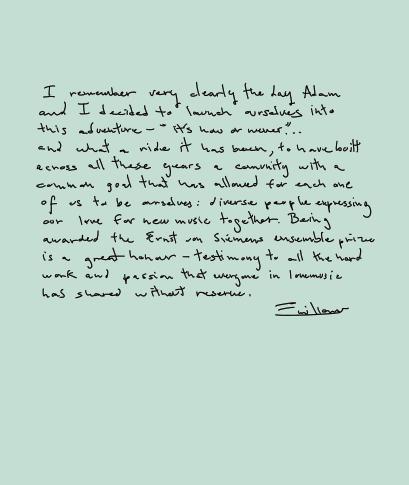 I remember very clearly the day Adam
and I decided to launch ourselves into
this adventure – "it's now or never!"...
and what a ride it has been, to have built
across all these years a comunity with a
common goal that has allowed for each one
of us to be ourselves: diverse people expressing
our love for new music together. Being
awarded the Ernst von Siemens ensemble prize
is a great honour – testimony to all the hard
work and passion that everyone in lovemusic
has shared without reserve.